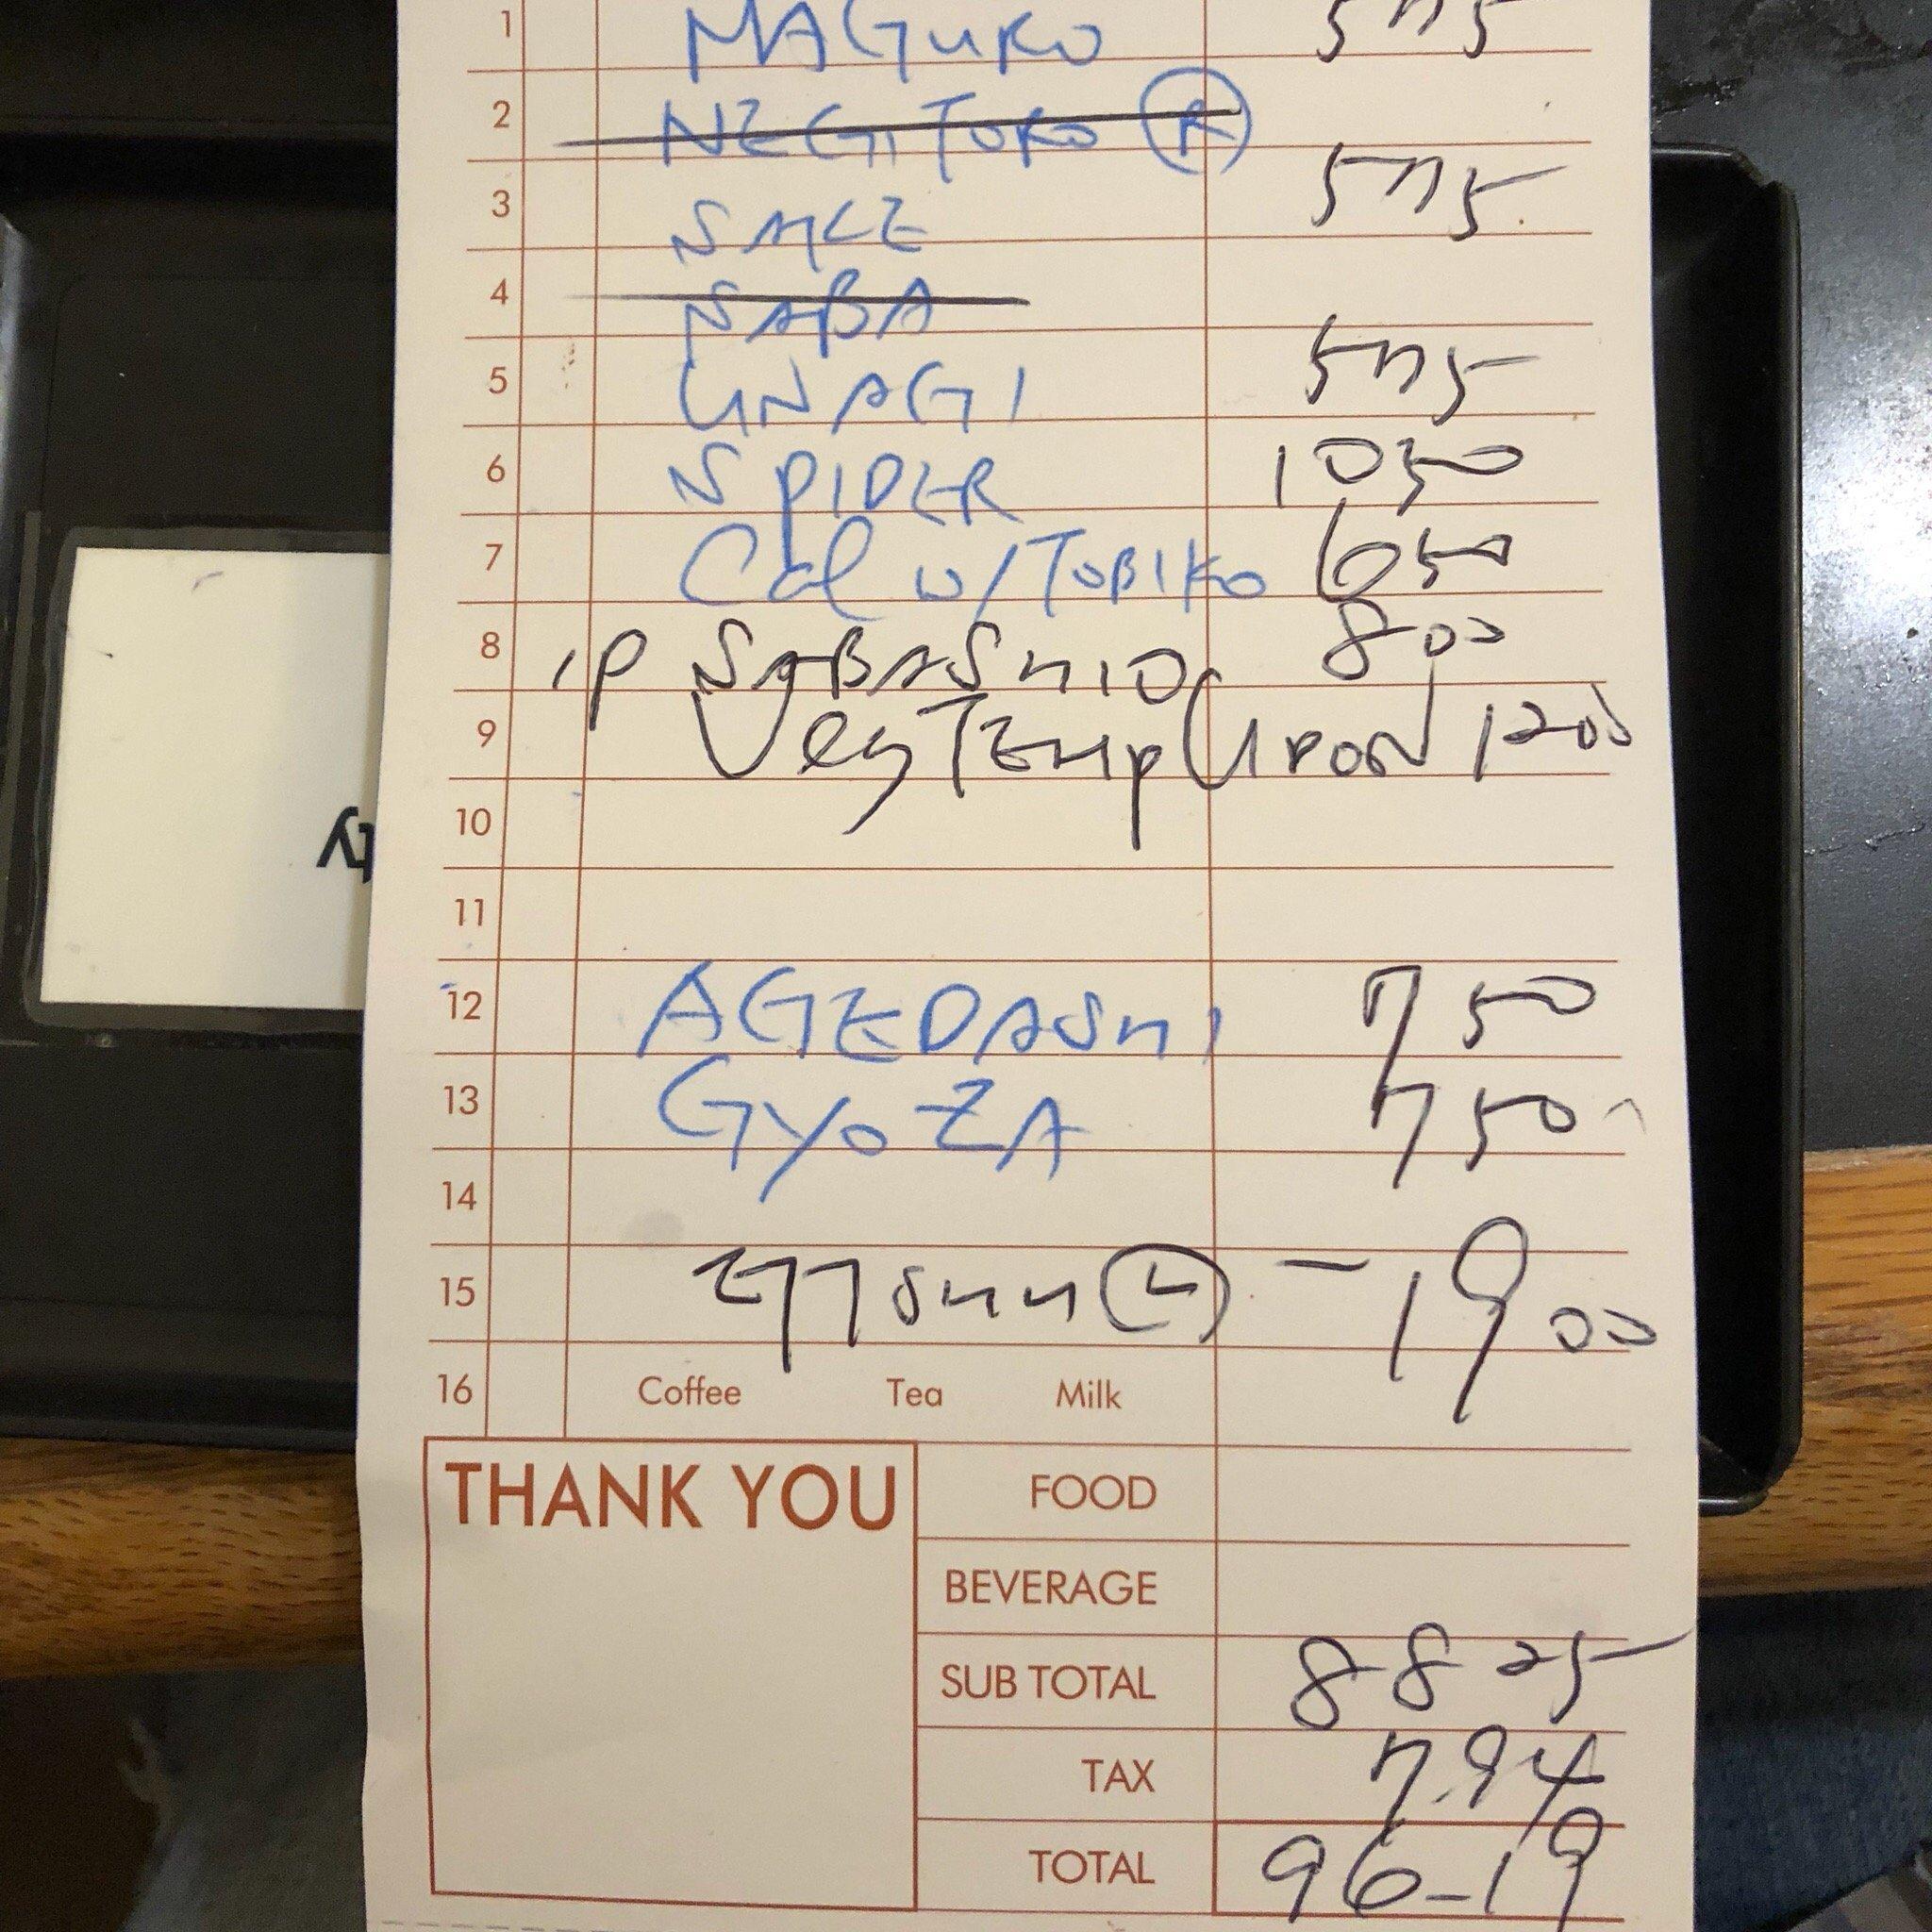 1 MAGURO 575
2 NEGI TORO R
3 SAKE 575
4 SABA
5 UNAGI 575
6 SPIDER 1050
7 Cal w/TOBIKO 650
8 1P SABASHIO 800
9 Veg TEMP UDON 1200
10
11
12 AGEDASHI 750
13 GYOZA 750
14
15 – 1900
16 Coffee Tea Milk
THANK YOU
FOOD
BEVERAGE
SUB TOTAL 8825
TAX 7.94
TOTAL 96-19